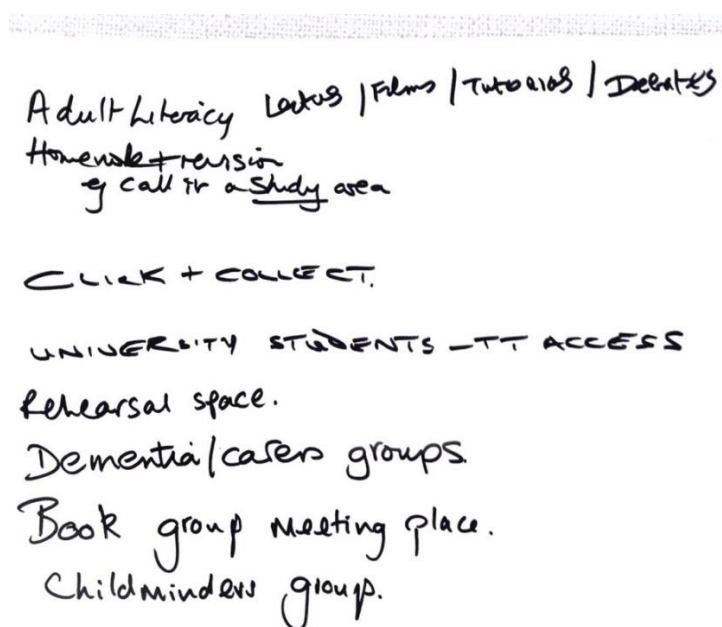 Adult Literacy Lectures | Films | Tutorials | Debates
Homework + revision
eg call it a study area
CLICK + COLLECT.
UNIVERSITY STUDENTS - IT ACCESS
Rehearsal space.
Dementia/carers groups.
Book group meeting place.
Childminders group.